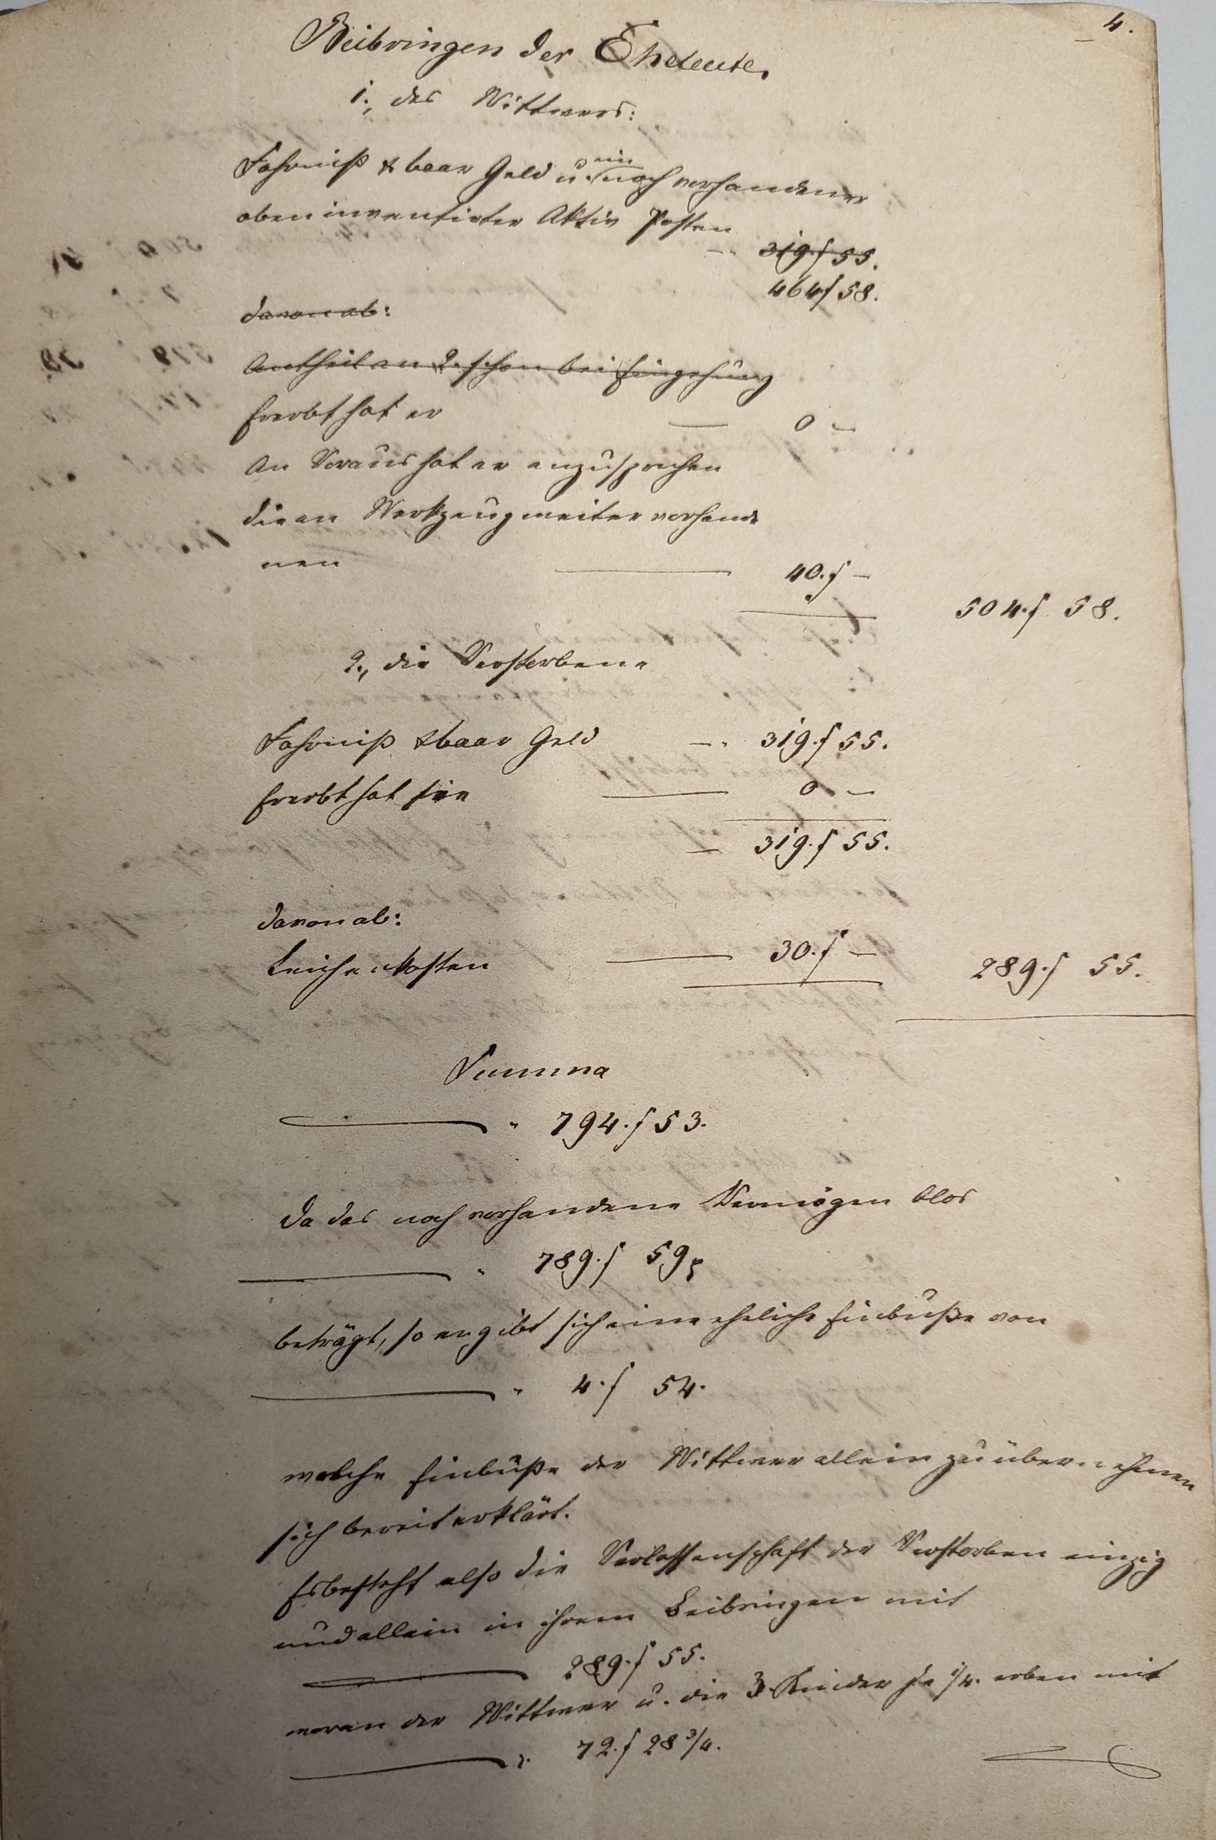 4.
Beibringen der Eheleute,
1., des Wittwers:
Fahrniß & baar Geld u. ein noch vorhandener
oben inventirter Aktiv Posten
319. f 55.
464 f 58.
davon ab:
Antheil an 2. schon bei Eingehung
Ererbt hat er — 0 —
An Voraus hat er anzusprechen
die an Werkzeug weiter vorhande
nen — 40. f —
504. f 58.
2., die Verstorbene
Fahrniß & baar Geld — 319. f 55.
Ererbt hat sie — 0 —
— 319. f 55.
davon ab:
Leichenkosten — 30. f —
289. f 55.
Summa
— " 794. f 53.
Da das noch vorhandene Vermögen blos
— " 789. f 59
beträgt, so ergibt sich eine eheliche Einbuße von
— " 4. f 54.
welche Einbuße der Wittwer allein zu übernehmen
sich bereit erklärt.
Es besteht also die Verlassenschaft der Verstorben einzig
und allein in ihrem Beibringen mit
— 289. f 55.
woran der Wittwer u. die 3 Kinder je 1/4. erben mit
— " 72. f 28 3/4.